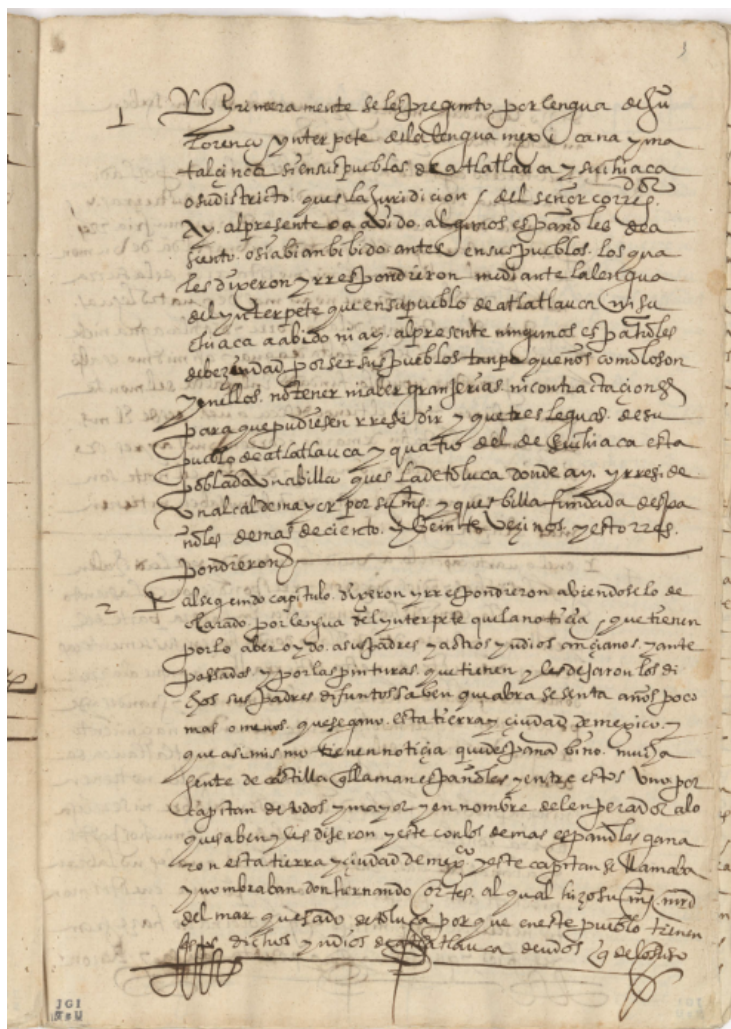 3
1 Primeramente se les pregunto por lengua de Ju
Lorenço ynterpete de la lengua mexicana y ma
talçinca si en sus pueblos de atlatlauca y suchiaca
o su districto ques la Juridicion del señor corregor
ay al presente o a avido algunos españoles de a
siento o si abian bibido antes en sus pueblos los qua
les dixeron y rrespondieron mediante la lengua
del ynterpete que en su pueblo de atlatlauca ni su
chiaca a abido ni ay al presente ningunos españoles
de bezindad por ser sus pueblos tan pequeños como lo son
y en ellos no tener ni aber granjerias ni contractaçiones
para que pudiesen rresidir y que tres leguas de su
pueblo de atlatlauca y quatro del de suchiaca esta
poblada una billa ques la de toluca donde ay y rresi de
un alcalde mayor por su mag. y ques billa fundada despa
ñoles de mas de ciento y beinte vezinos y esto rres
pondieron
2 al segundo capitulo dixeron y rrespondieron abiendoselo de
clarado por lengua del ynterpete que la notiçia que tienen
por lo aber oydo a sus padres y a otros yndios ançianos y ante
pasados y por las pinturas que tienen y les dejaron los di
chos sus padres difuntos saben que abra sesenta años poco
mas o menos que se gano esta tierra y çiudad de mexico y
que asimismo tienen notiçia que despaña bino mucha
gente de castilla q llaman españoles y entre estos uno por
capitan de todos y mayor y en nombre del enperador a lo
que saben y les dijeron y este con los demas españoles gana
ron esta tierra y çiudad de mexco y este capitan se llamaba
y nombraban don hernando cortes al qual hizo su mag. mrd
del marquesado de toluca porque en este pueblo tienen
estos dichos yndios de atlatlauca deudos q de
JGI